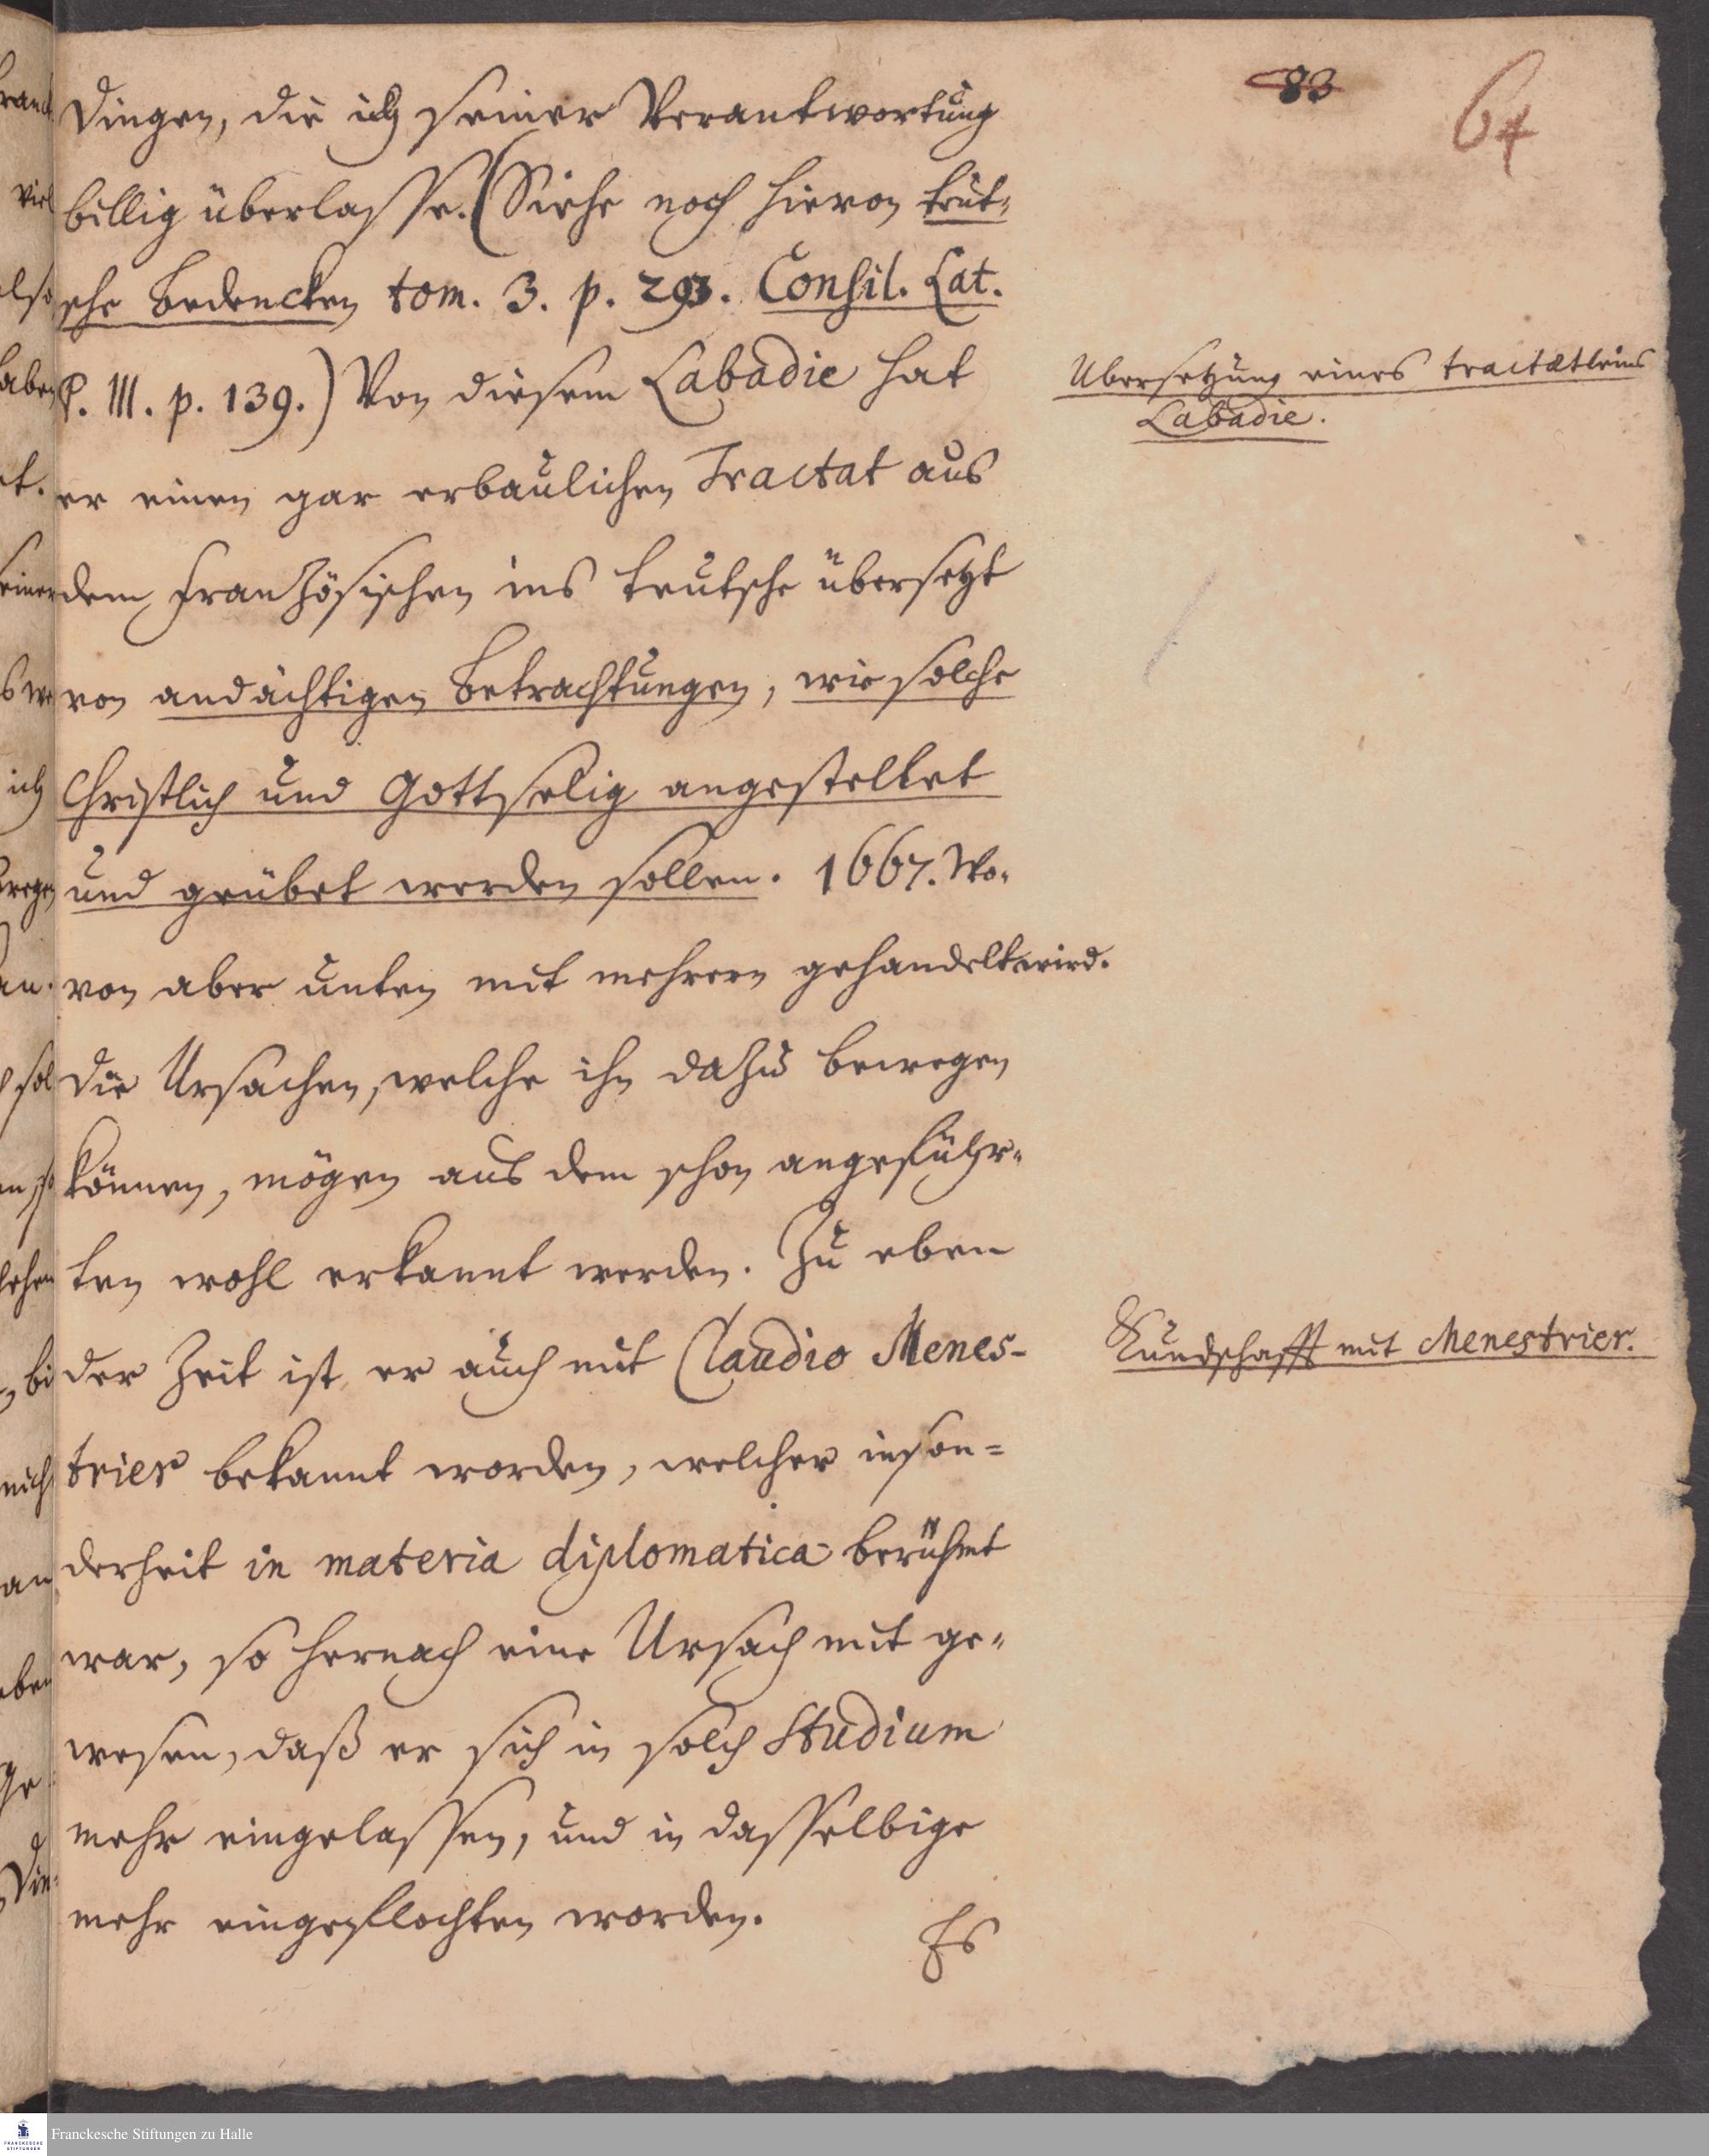 83
64
Dingen, die ich seiner Verantwortung
billig überlasse. (Siehe noch hievon teut-
sche Bedencken tom. 3. p. 293. Consil. Lat.
P. III. p. 139.) Von diesem Labadie hat
er einen gar erbaulichen Tractat aus
dem Französischen ins teutsche übersetzt
von andächtigen Betrachtungen, wie solche
Christlich und Gottselig angestellet
und geübet werden sollen. 1667. Wo-
von aber unten mit mehrern gehandelt wird.
die Ursachen, welche ihn dazu bewegen
können, mögen aus dem schon angeführ-
ten wohl erkannt werden. Zu eben
der Zeit ist er auch mit Claudio Menes-
trier bekannt worden, welcher inson-
derheit in materia diplomatica berühmt
war, so hernach eine Ursach mit ge-
wesen, daß er sich in solch Studium
mehr eingelassen, und in dasselbige
mehr eingeflochten worden.
Es
Ubersetzung eines tractætleins
Labadie.
Kundschafft mit Menestrier.
Franckesche Stiftungen zu Halle